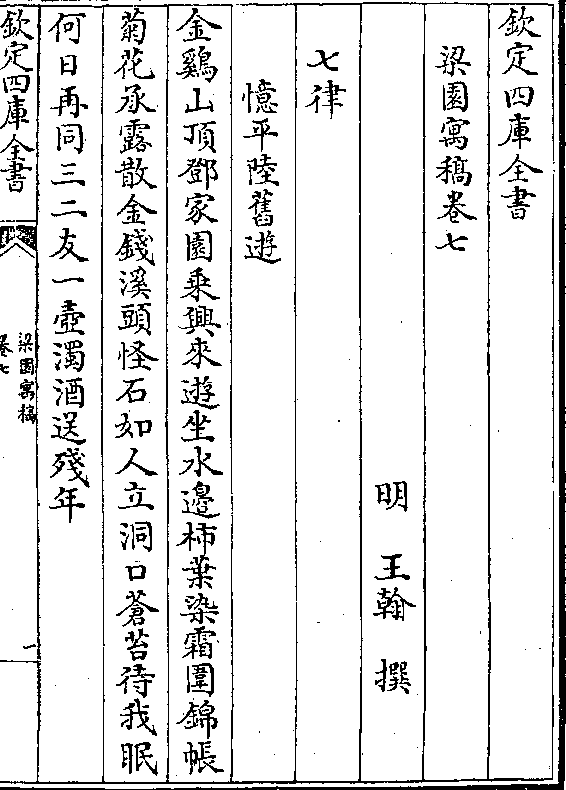 欽定四庫全書
梁園寓稿卷七
明　王翰　撰
七律
憶平陸舊遊
金鷄山頂鄧家園乗興來遊坐水邊柿葉染霜圍錦帳
菊花承露散金錢溪頭怪石如人立洞口蒼苔待我眠
何日再同三二友一壺濁酒送殘年
欽定四庫全書
梁園寓稿
卷七
一